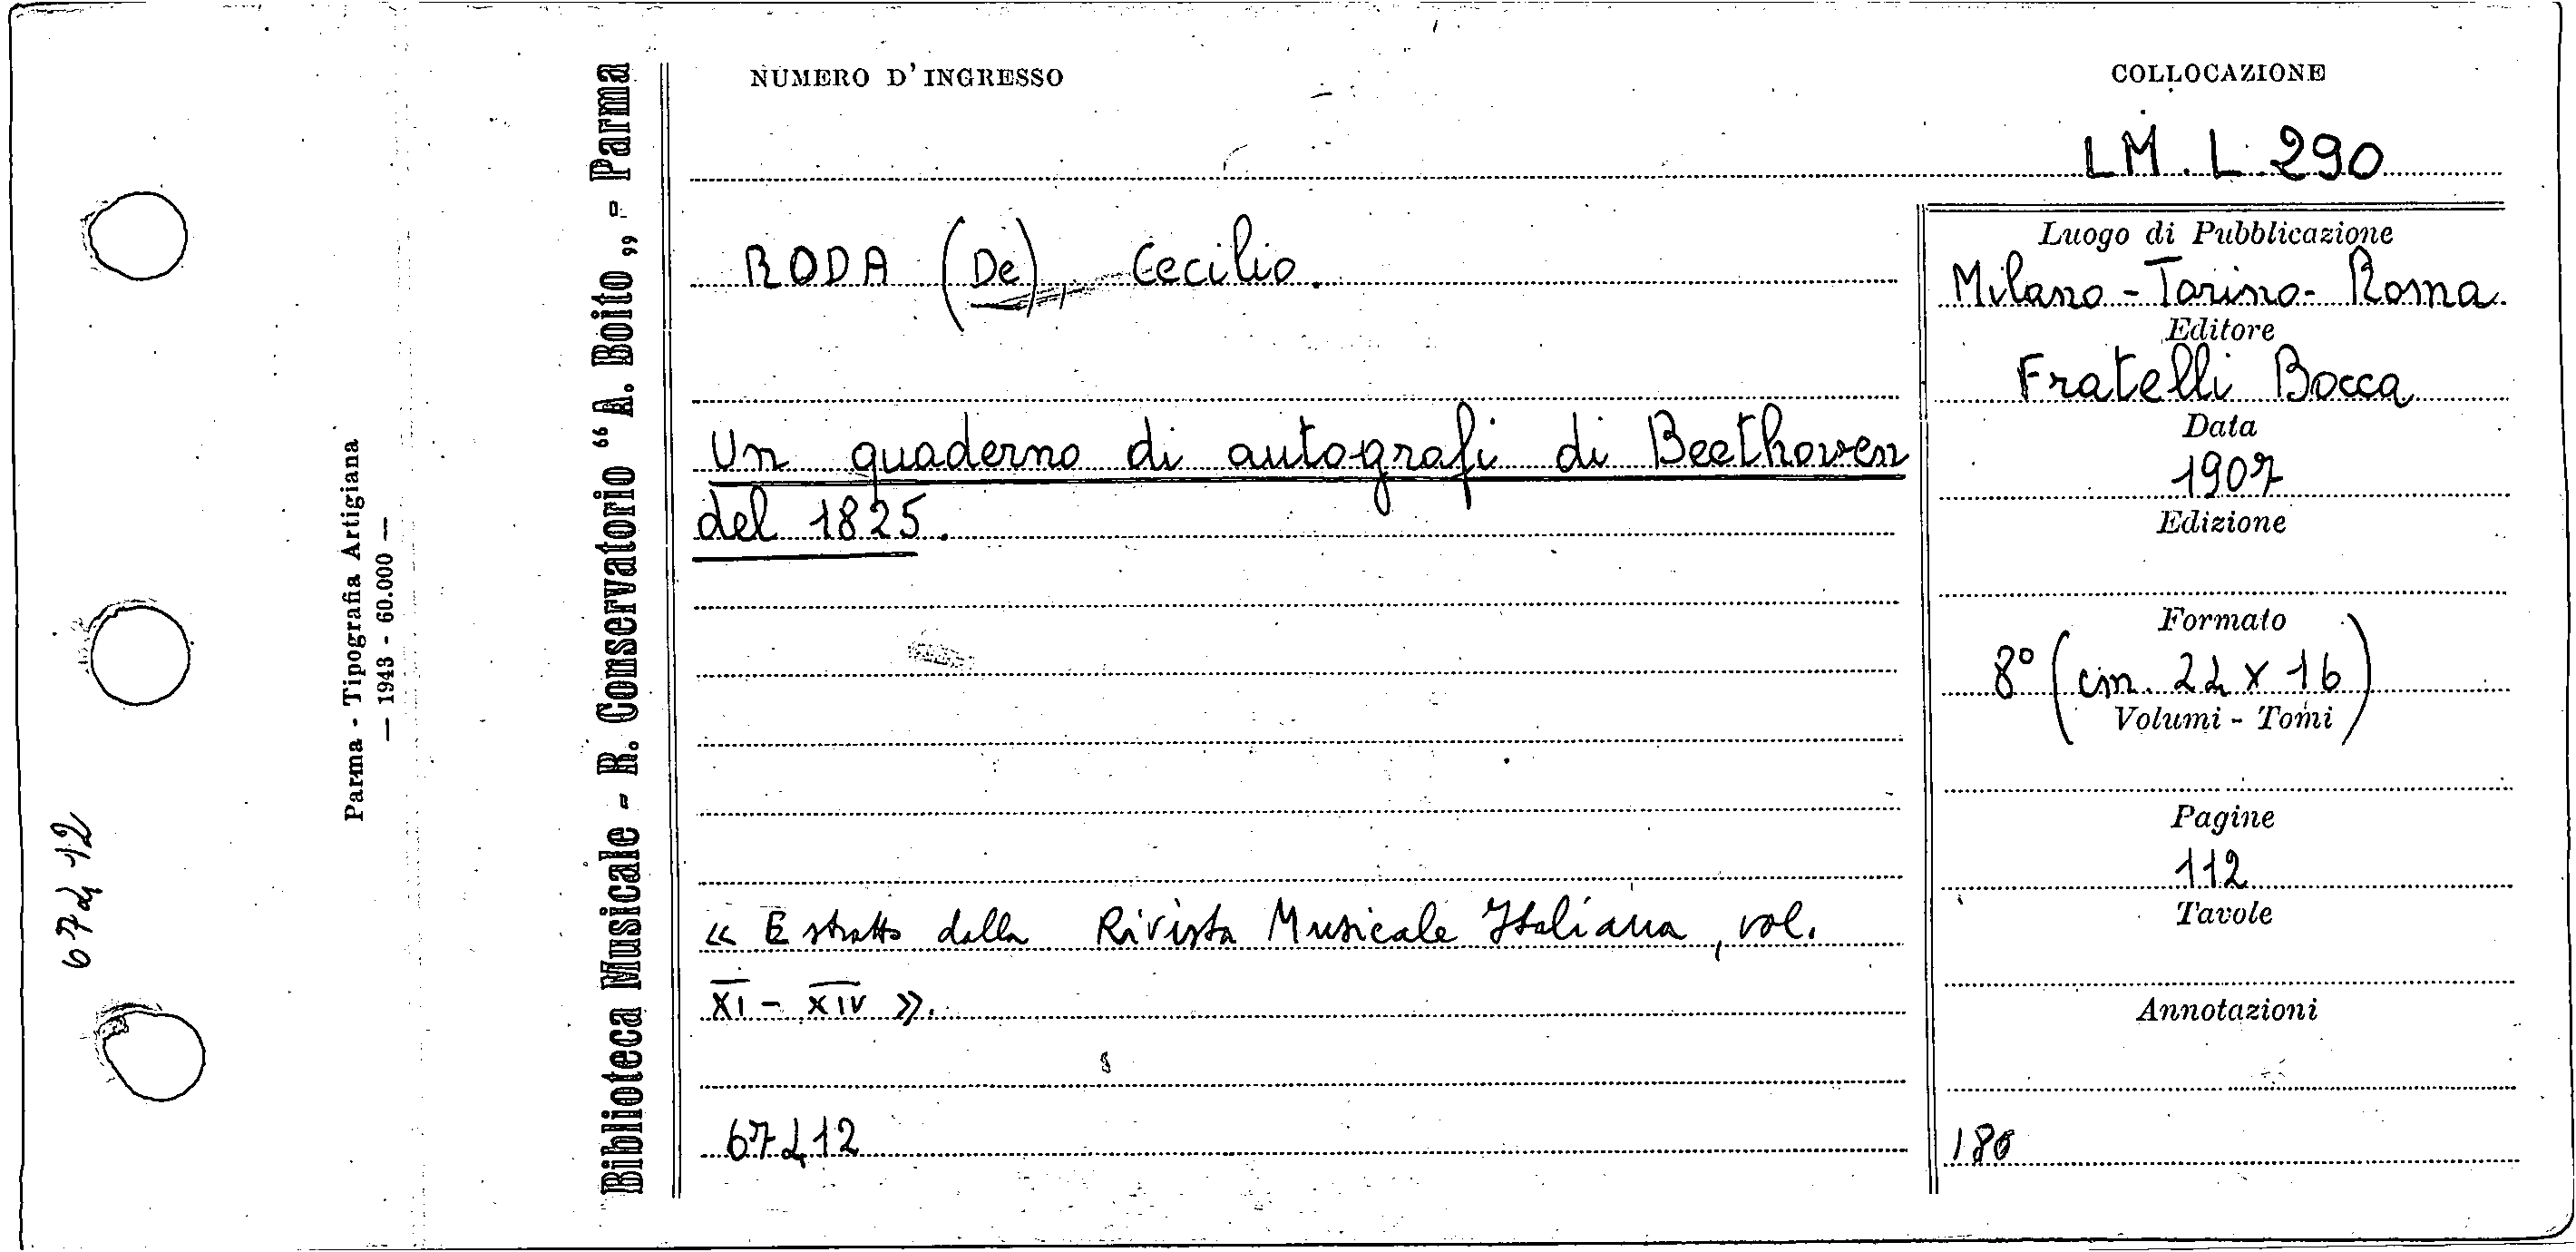 NUMERO D'INGRESSO
COLLOCAZIONE
LM. L. 290
RODA (De), Cecilio.
Un quaderno di autografi di Beethoven
del 1825.
« Estratto dalla Rivista Musicale Italiana, vol.
XI - XIV ».
67412
Luogo di Pubblicazione
Milano - Torino - Roma
Editore
Fratelli Bocca
Data
1907
Edizione
Formato
8° (cm. 24 x 16)
Volumi - Tomi
Pagine
112
Tavole
Annotazioni
Biblioteca Musicale - R. Conservatorio “A. Boito„ - Parma
Parma - Tipografia Artigiana
— 1943 - 60.000 —
67412